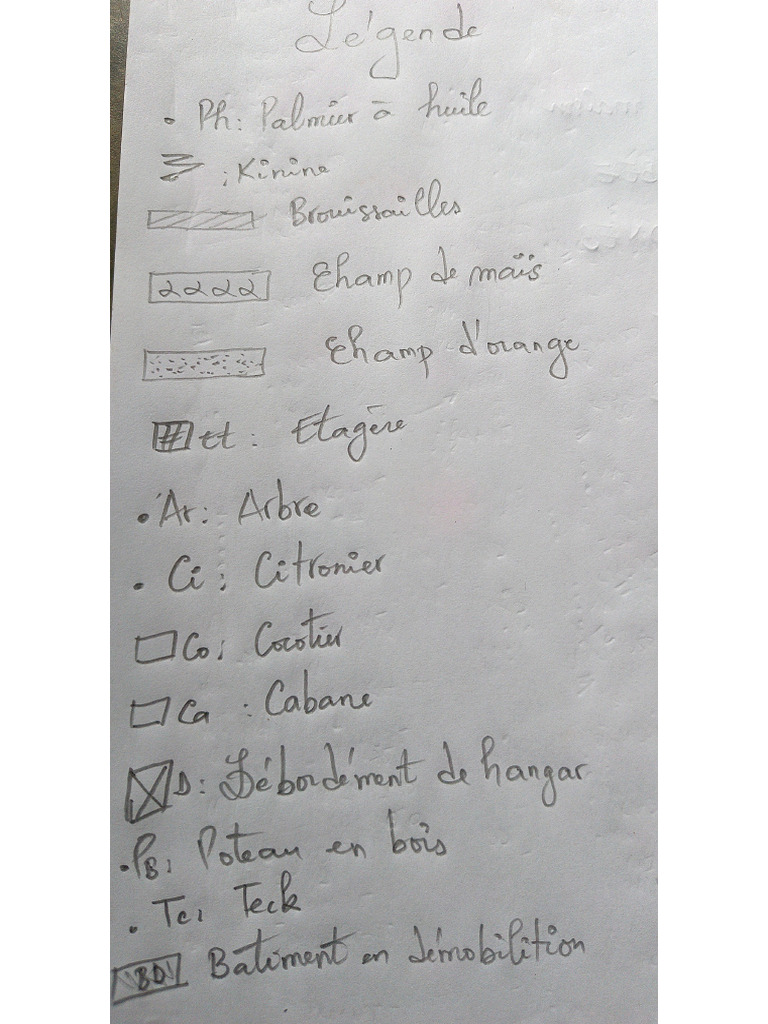 Légende
• Ph: Palmier à huile
: Kinine
Brouissailles
αααα Champ de maïs
Champ d'orange
Et : Etagère
• Ar: Arbre
• Ci : Citronier
Co: Cocotier
Ca : Cabane
D: Débordément de hangar
• PB: Poteau en bois
• Tc: Teck
BD Bâtiment en démobilition